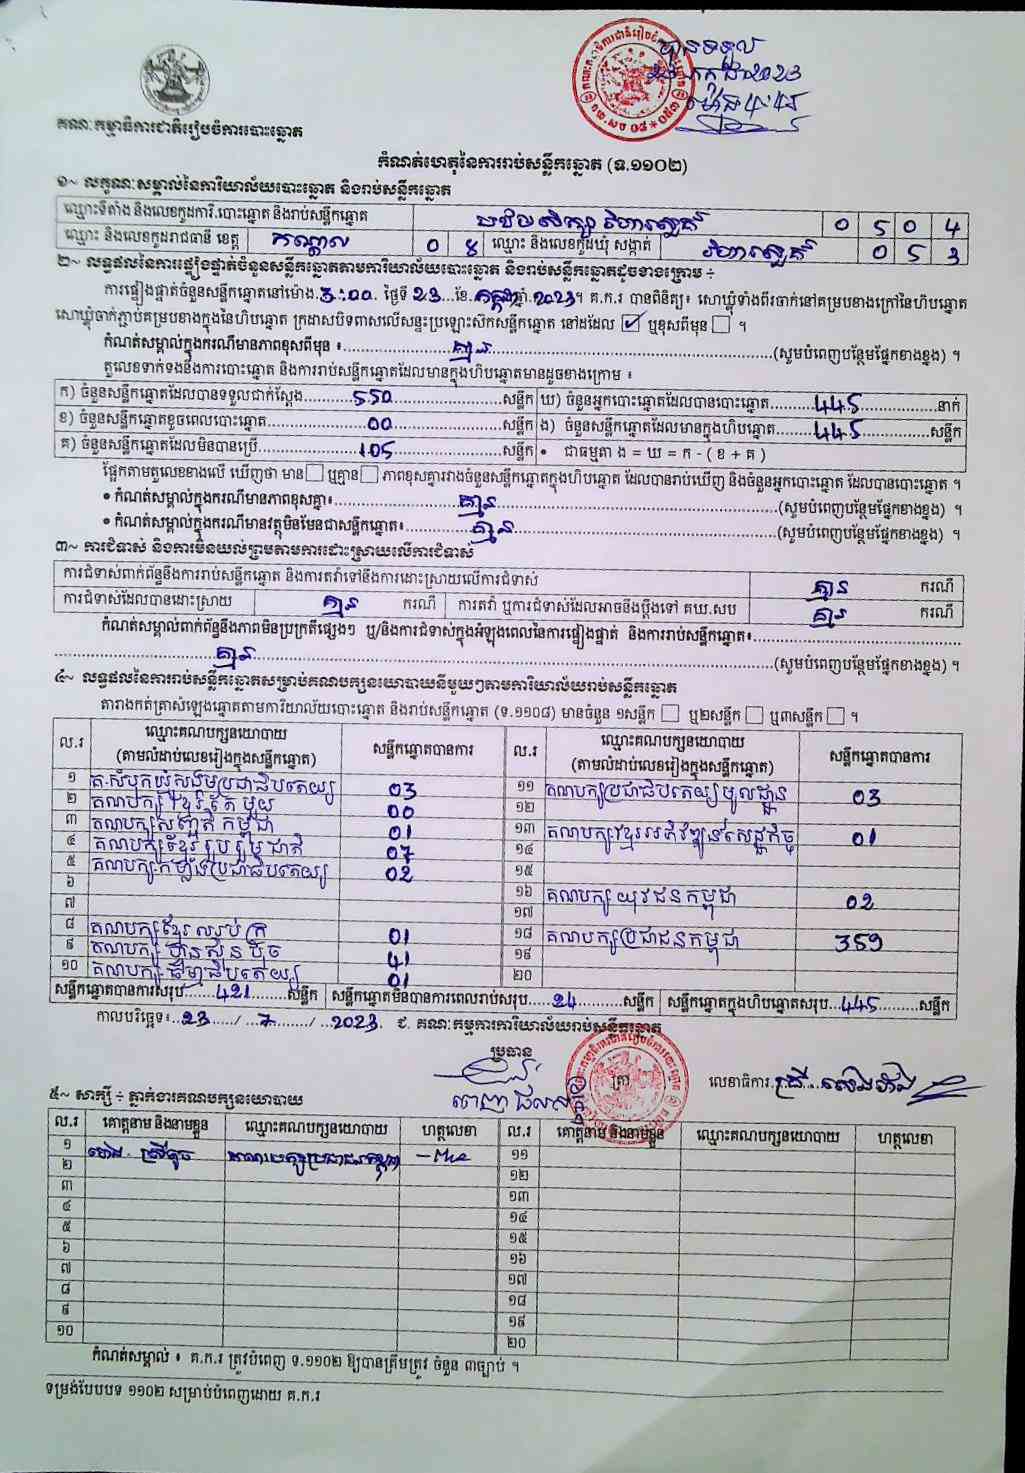 បានទទួល
គណៈកម្មាធិការជាតិរៀបចំការបោះឆ្នោត
កំណត់ហេតុនៃការរាប់សន្លឹកឆ្នោត (ទ.១១០២)
១~ លក្ខណៈសម្គាល់នៃការិយាល័យបោះឆ្នោត និងរាប់សន្លឹកឆ្នោត
ឈ្មោះទីតាំង និងលេខកូដការិ.បោះឆ្នោត និងរាប់សន្លឹកឆ្នោត 0 5 0 4
ឈ្មោះ និងលេខកូដរាជធានី ខេត្ត កណ្តាល 0 8 ឈ្មោះ និងលេខកូដឃុំ សង្កាត់ 0 5 3
២~ លទ្ធផលនៃការផ្ទៀងផ្ទាត់ចំនួនសន្លឹកឆ្នោតតាមការិយាល័យបោះឆ្នោត និងរាប់សន្លឹកឆ្នោតដូចខាងក្រោម ÷
ការផ្ទៀងផ្ទាត់ចំនួនសន្លឹកឆ្នោតនៅម៉ោង.3:00. ថ្ងៃទី 23...ខែ.កក្កដា.ឆ្នាំ.2023។ គ.ក.រ បានពិនិត្យ៖ សោឃ្លុំទាំងពីរចាក់នៅគម្របខាងក្រៅនៃហិបឆ្នោត
សោឃ្លុំចាក់ភ្ជាប់គម្របខាងក្នុងនៃហិបឆ្នោត ក្រដាសបិទពាសលើសន្ទះប្រឡោះស៊កសន្លឹកឆ្នោត នៅដដែល ☑ ឬខុសពីមុន ☐ ។
កំណត់សម្គាល់ក្នុងករណីមានភាពខុសពីមុន ៖ គ្មាន (សូមបំពេញបន្ថែមផ្នែកខាងខ្នង) ។
តួលេខទាក់ទងនឹងការបោះឆ្នោត និងការរាប់សន្លឹកឆ្នោតដែលមានក្នុងហិបឆ្នោតមានដូចខាងក្រោម ៖
ក) ចំនួនសន្លឹកឆ្នោតដែលបានទទួលជាក់ស្តែង 550 សន្លឹក ឃ) ចំនួនអ្នកបោះឆ្នោតដែលបានបោះឆ្នោត 445 នាក់
ខ) ចំនួនសន្លឹកឆ្នោតខូចពេលបោះឆ្នោត 00 សន្លឹក ង) ចំនួនសន្លឹកឆ្នោតដែលមានក្នុងហិបឆ្នោត 445 សន្លឹក
គ) ចំនួនសន្លឹកឆ្នោតដែលមិនបានប្រើ 105 សន្លឹក • ជាធម្មតា ង = ឃ = ក - ( ខ + គ )
ផ្អែកតាមតួលេខខាងលើ ឃើញថា មាន ☐ ឬគ្មាន ☐ ភាពខុសគ្នារវាងចំនួនសន្លឹកឆ្នោតក្នុងហិបឆ្នោត ដែលបានរាប់ឃើញ និងចំនួនអ្នកបោះឆ្នោត ដែលបានបោះឆ្នោត ។
• កំណត់សម្គាល់ក្នុងករណីមានភាពខុសគ្នា៖ គ្មាន (សូមបំពេញបន្ថែមផ្នែកខាងខ្នង) ។
• កំណត់សម្គាល់ក្នុងករណីមានវត្ថុមិនមែនជាសន្លឹកឆ្នោត៖ គ្មាន (សូមបំពេញបន្ថែមផ្នែកខាងខ្នង) ។
៣~ ការជំទាស់ និងការមិនយល់ព្រមតាមការដោះស្រាយលើការជំទាស់
ការជំទាស់ពាក់ព័ន្ធនឹងការរាប់សន្លឹកឆ្នោត និងការតវ៉ាទៅនឹងការដោះស្រាយលើការជំទាស់ គ្មាន ករណី
ការជំទាស់ដែលបានដោះស្រាយ គ្មាន ករណី ការតវ៉ា ឬការជំទាស់ដែលអាចនឹងប្តឹងទៅ គឃ.សប គ្មាន ករណី
កំណត់សម្គាល់ពាក់ព័ន្ធនឹងភាពមិនប្រក្រតីផ្សេងៗ ឬ/និងការជំទាស់ក្នុងអំឡុងពេលនៃការផ្ទៀងផ្ទាត់ និងការរាប់សន្លឹកឆ្នោត៖
គ្មាន (សូមបំពេញបន្ថែមផ្នែកខាងខ្នង) ។
៤~ លទ្ធផលនៃការរាប់សន្លឹកឆ្នោតសម្រាប់គណបក្សនយោបាយនីមួយៗតាមការិយាល័យរាប់សន្លឹកឆ្នោត
តារាងកត់ត្រាសំឡេងឆ្នោតតាមការិយាល័យបោះឆ្នោត និងរាប់សន្លឹកឆ្នោត (ទ.១១០៨) មានចំនួន ១សន្លឹក ☐ ឬ២សន្លឹក ☐ ឬ៣សន្លឹក ☐ ។
ល.រ ឈ្មោះគណបក្សនយោបាយ (តាមលំដាប់លេខរៀងក្នុងសន្លឹកឆ្នោត) សន្លឹកឆ្នោតបានការ ល.រ ឈ្មោះគណបក្សនយោបាយ (តាមលំដាប់លេខរៀងក្នុងសន្លឹកឆ្នោត) សន្លឹកឆ្នោតបានការ
១ គ.សំបុកឃ្មុំសង្គមប្រជាធិបតេយ្យ 03 ១១ គណបក្សប្រជាធិបតេយ្យមូលដ្ឋាន 03
២ គណបក្សខ្មែរតែមួយ 00 ១២
៣ គណបក្សសញ្ជាតិកម្ពុជា 01 ១៣ គណបក្សខ្មែរអភិវឌ្ឍន៍សេដ្ឋកិច្ច 01
៤ គណបក្សខ្មែររួបរួមជាតិ 07 ១៤
៥ គណបក្សកម្លាំងប្រជាធិបតេយ្យ 02 ១៥
៦ ១៦ គណបក្សយុវជនកម្ពុជា 02
៧ ១៧
៨ គណបក្សខ្មែរឈប់ក្រ 01 ១៨ គណបក្សប្រជាជនកម្ពុជា 359
៩ គណបក្សហ្វ៊ុនស៊ិនប៉ិច 41 ១៩
១០ គណបក្សធម្មាធិបតេយ្យ 01 ២០
សន្លឹកឆ្នោតបានការសរុប 421 សន្លឹក សន្លឹកឆ្នោតមិនបានការពេលរាប់សរុប 24 សន្លឹក សន្លឹកឆ្នោតក្នុងហិបឆ្នោតសរុប 445 សន្លឹក
កាលបរិច្ឆេទ៖ 23 / 7 / 2023 ជ. គណៈកម្មការការិយាល័យរាប់សន្លឹកឆ្នោត
ប្រធាន ត្រា លេខាធិការ
៥~ សាក្សី ÷ ភ្នាក់ងារគណបក្សនយោបាយ
ល.រ គោត្តនាម និងនាមខ្លួន ឈ្មោះគណបក្សនយោបាយ ហត្ថលេខា ល.រ គោត្តនាម និងនាមខ្លួន ឈ្មោះគណបក្សនយោបាយ ហត្ថលេខា
១ គណបក្សប្រជាជនកម្ពុជា ១១
២ ១២
៣ ១៣
៤ ១៤
៥ ១៥
៦ ១៦
៧ ១៧
៨ ១៨
៩ ១៩
១០ ២០
កំណត់សម្គាល់ ៖ គ.ក.រ ត្រូវបំពេញ ទ.១១០២ ឱ្យបានត្រឹមត្រូវ ចំនួន ៣ច្បាប់ ។
ទម្រង់បែបបទ ១១០២ សម្រាប់បំពេញដោយ គ.ក.រ